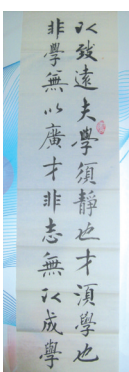 以致遠夫學須靜也才須學也
非學無以廣才非志無以成學